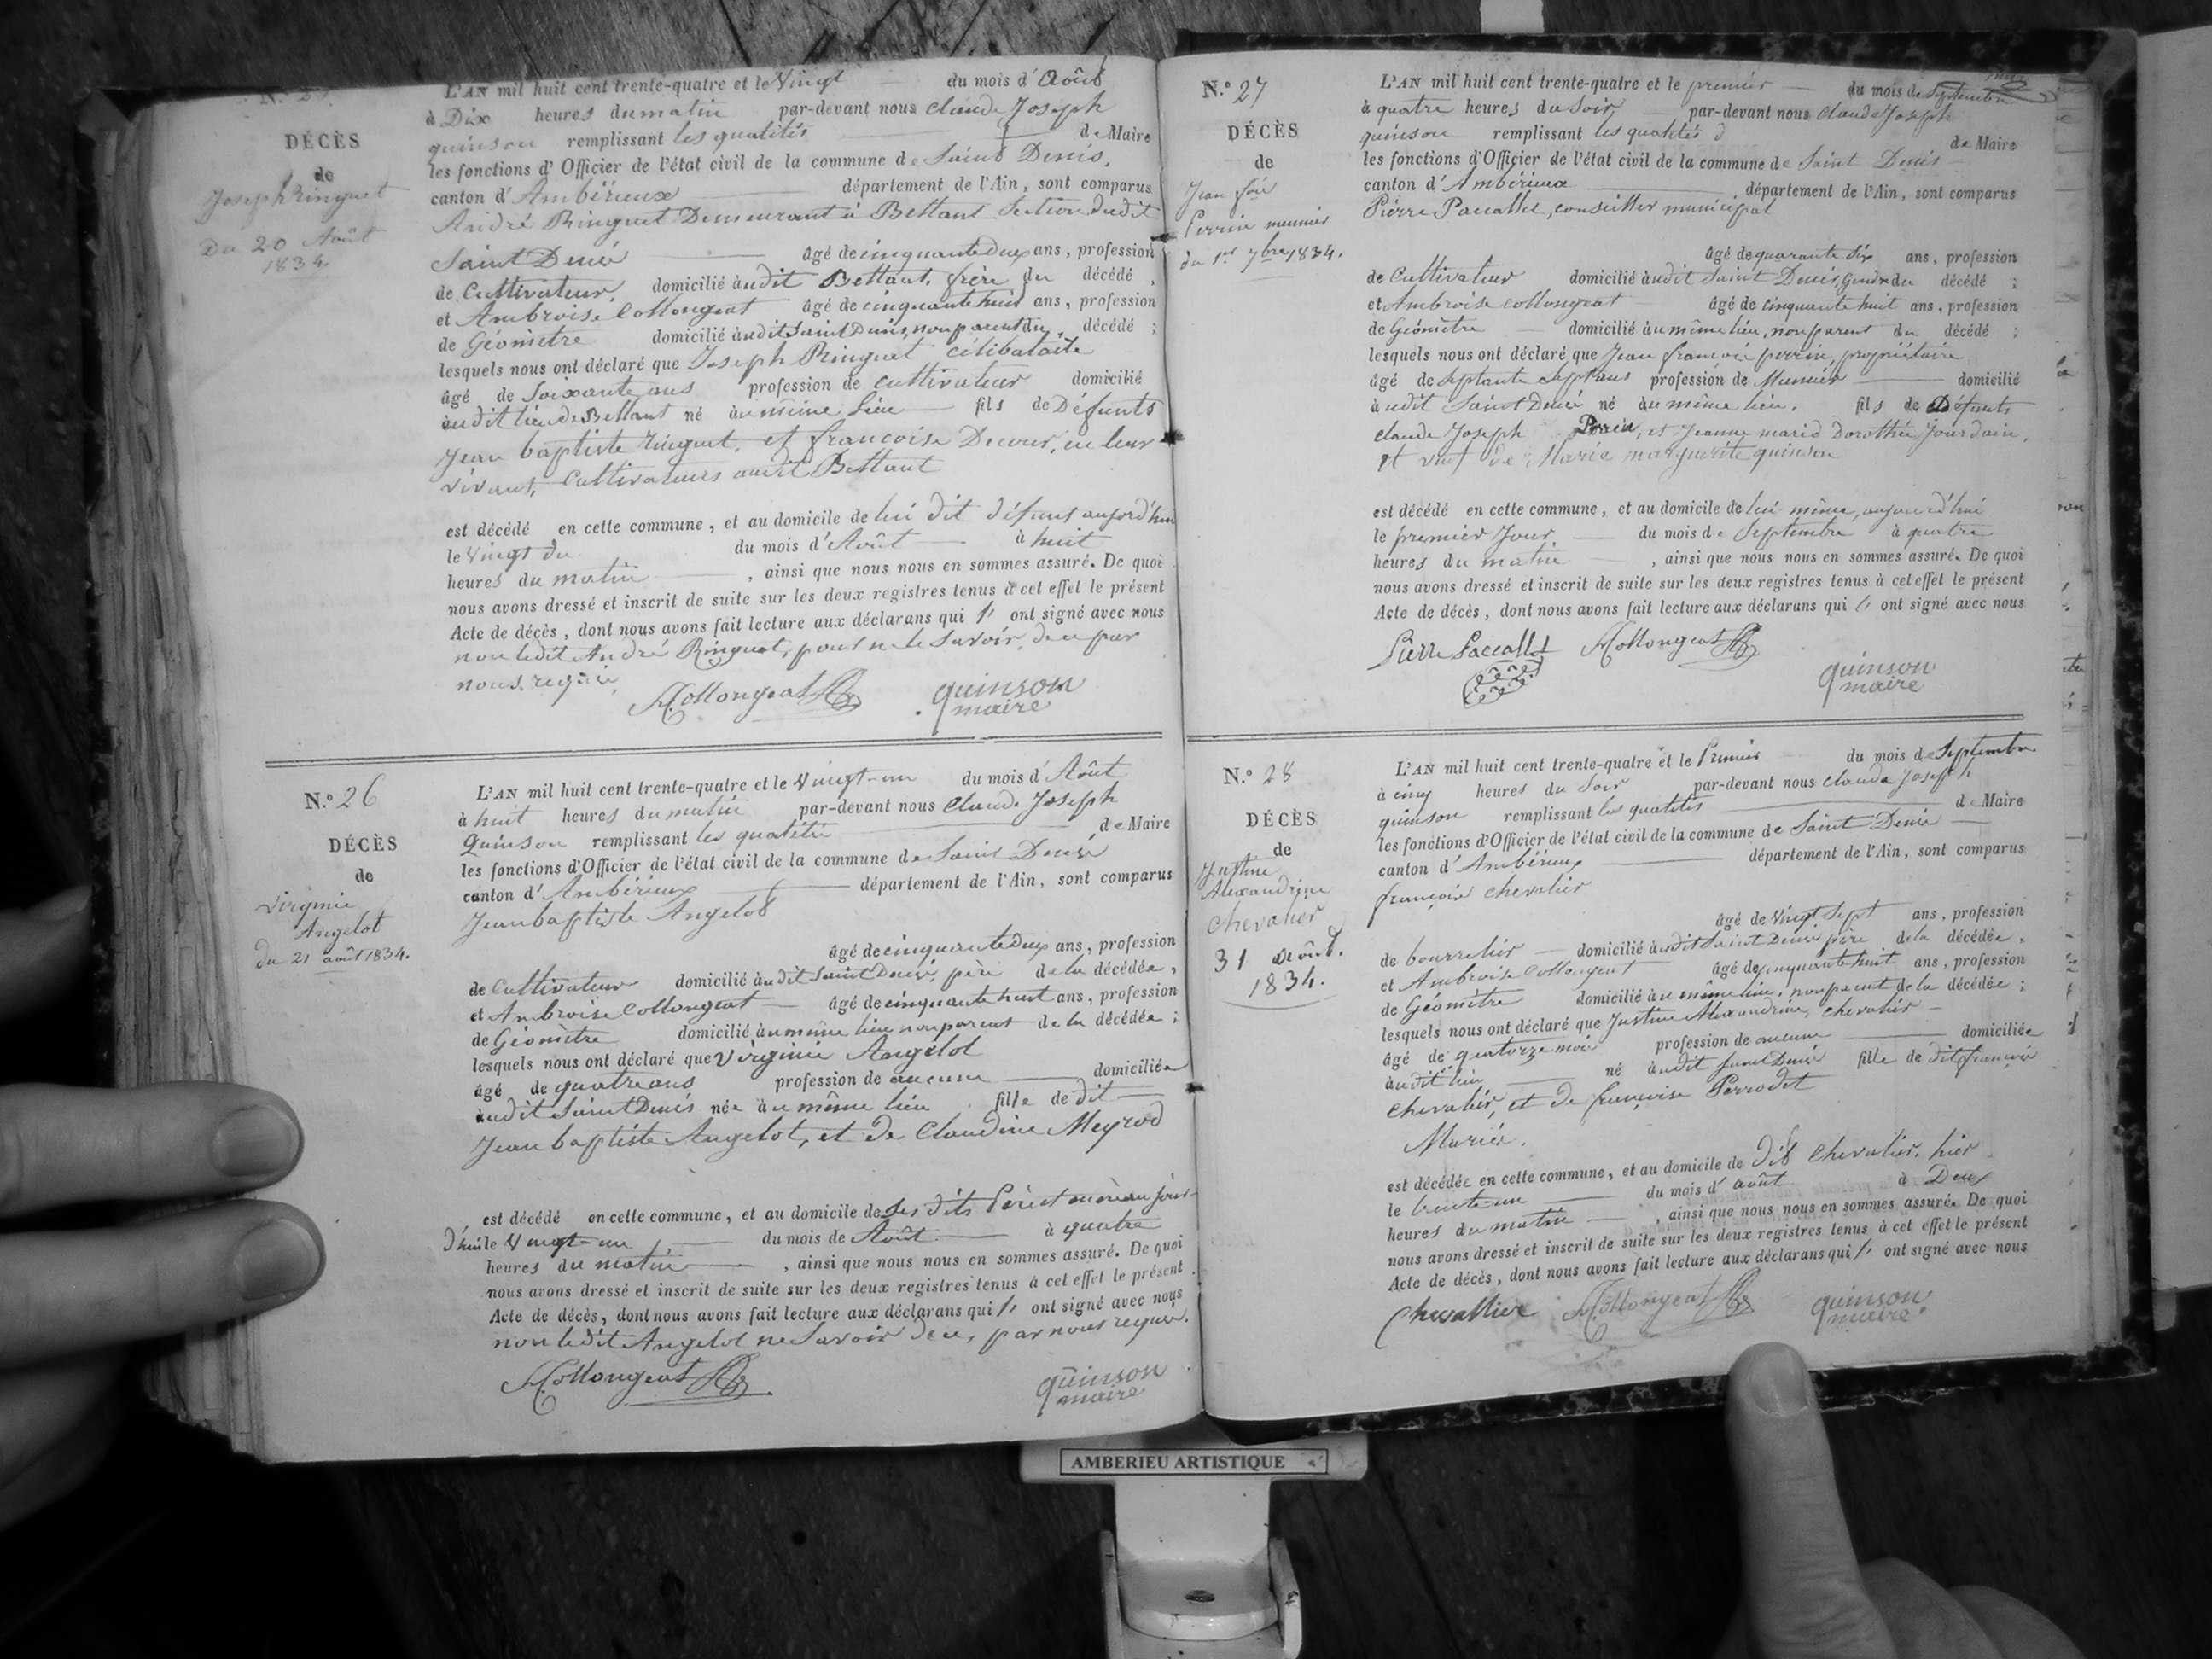 N.º 25
DÉCÈS
de
Joseph Ringuet
Du 20 Août
1834.
L'AN mil huit cent trente-quatre et le Vingt du mois d'Août
à Dix heures du matin par-devant nous Claude Joseph
quinson remplissant les qualités de Maire
les fonctions d'Officier de l'état civil de la commune de Saint Denis,
canton d'Ambérieux département de l'Ain, sont comparus
André Ringuet Demeurant à Bettant Section dudit
Saint Denis âgé de cinquante Deux ans, profession
de Cultivateur, domicilié audit Bettant, frère du décédé,
et Ambroise Collongeat âgé de cinquante huit ans, profession
de Géomètre domicilié audit Saint Denis, non parent du décédé ;
lesquels nous ont déclaré que Joseph Ringuet célibataite
âgé de Soixante ans profession de cultivateur domicilié
audit lieu de Bettant né au même lieu fils de Défunts
Jean baptiste ringuet, et francoise Decour, en leur
vivant, Cultivateurs audit Bettant
est décédé en cette commune, et au domicile de lui dit défunt aujord'hui
le Vingt du du mois d'Août à huit
heures du matin , ainsi que nous nous en sommes assuré. De quoi
nous avons dressé et inscrit de suite sur les deux registres tenus à cet effet le présent
Acte de décès, dont nous avons fait lecture aux déclarans qui l' ont signé avec nous
non ledit André Ringuet, pour ne le savoir, de ce par
nous requis
Collongeat quinson
maire
N.º 26
DÉCÈS
de
virginie
Angelot
du 21 août 1834.
L'AN mil huit cent trente-quatre et le Vingt-un du mois d'Août
à huit heures du matin par-devant nous Claude Joseph
Quinson remplissant les qualités de Maire
les fonctions d'Officier de l'état civil de la commune de Saint Denis
canton d'Ambérieux département de l'Ain, sont comparus
Jean baptiste Angelot
âgé de cinquante Deux ans, profession
de Cultivateur domicilié audit Saint Denis, père de la décédée,
et Ambroise Collongeat âgé de cinquante huit ans, profession
de Géomètre domicilié au même lieu non parent de la décédée ;
lesquels nous ont déclaré que Virginie Angelot
âgé de quatre ans profession de aucune domiciliée
audit Saint Denis née au même lieu fille de dit
Jean baptiste Angelot, et de Claudine Meyrod
est décédé en cette commune, et au domicile de Ses dits Père et mère au jour-
d'hui le Vingt-un du mois de Août à quatre
heures du matin , ainsi que nous nous en sommes assuré. De quoi
nous avons dressé et inscrit de suite sur les deux registres tenus à cet effet le présent
Acte de décès, dont nous avons fait lecture aux déclarans qui l' ont signé avec nous
non ledit Angelot ne Savoir de ce, par nous requis.
Collongeat quinson
maire
N.º 27
DÉCÈS
de
Jean fois
Perrin meunier
du 1er 7bre 1834.
L'AN mil huit cent trente-quatre et le premier du mois de Septembre
à quatre heures du Soir par-devant nous Claude Joseph
quinson remplissant les qualités de Maire
les fonctions d'Officier de l'état civil de la commune de Saint Denis
canton d'Ambérieux département de l'Ain, sont comparus
Pierre Paccallet, conseiller municipal
âgé de quarante Six ans, profession
de Cultivateur domicilié audit Saint Denis, Gendre du décédé ;
et Ambroise Collongeat âgé de cinquante huit ans, profession
de Géomètre domicilié au même lieu, non parent du décédé ;
lesquels nous ont déclaré que Jean françois perrin, propriétaire
âgé de Septante Sept ans profession de Meunier domicilié
audit Saint Denis né au même lieu. fils de Défunts
claude Joseph Perrin, et Jeanne marie Dorothée Jourdain,
et veuf de Marie marguerite quinson
est décédé en cette commune, et au domicile de lui même, aujourd'hui
le premier Jour, du mois de Septembre à quatre
heures du matin , ainsi que nous nous en sommes assuré. De quoi
nous avons dressé et inscrit de suite sur les deux registres tenus à cet effet le présent
Acte de décès, dont nous avons fait lecture aux déclarans qui l' ont signé avec nous
Pierre Paccallet Collongeat
quinson
maire
N.º 28
DÉCÈS
de
Justine
Alexandrine
Chevalier
31 août.
1834.
L'AN mil huit cent trente-quatre et le Premier du mois de Septembre
à cinq heures du Soir par-devant nous Claude Joseph
quinson remplissant les qualités de Maire
les fonctions d'Officier de l'état civil de la commune de Saint Denis
canton d'Ambérieux département de l'Ain, sont comparus
françois chevalier
âgé de Vingt Sept ans, profession
de bourrelier domicilié audit Saint Denis père de la décédée,
et Ambroise Collongeat âgé de cinquante huit ans, profession
de Géomètre domicilié au même lieu, non parent de la décédée ;
lesquels nous ont déclaré que Justine Alexandrine, chevalier
âgé de quatorze mois profession de aucune domiciliée
audit lieu né audit Saint Denis fille de dit françois
chevalier, et de françoise Perrodet
Mariés.
est décédée en cette commune, et au domicile de dit Chevalier, hier
le trente un du mois d'août à Deux
heures du matin , ainsi que nous nous en sommes assuré. De quoi
nous avons dressé et inscrit de suite sur les deux registres tenus à cet effet le présent
Acte de décès, dont nous avons fait lecture aux déclarans qui l' ont signé avec nous
Chevallier Collongeat quinson
maire
AMBERIEU ARTISTIQUE